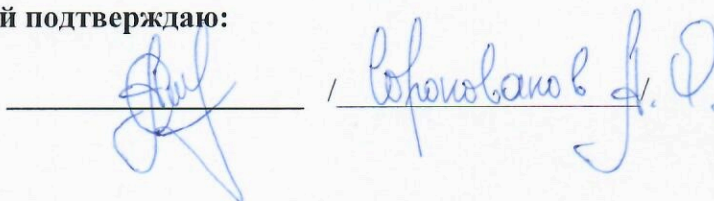 й подтверждаю:
/ Сорокованов А. Ф. /